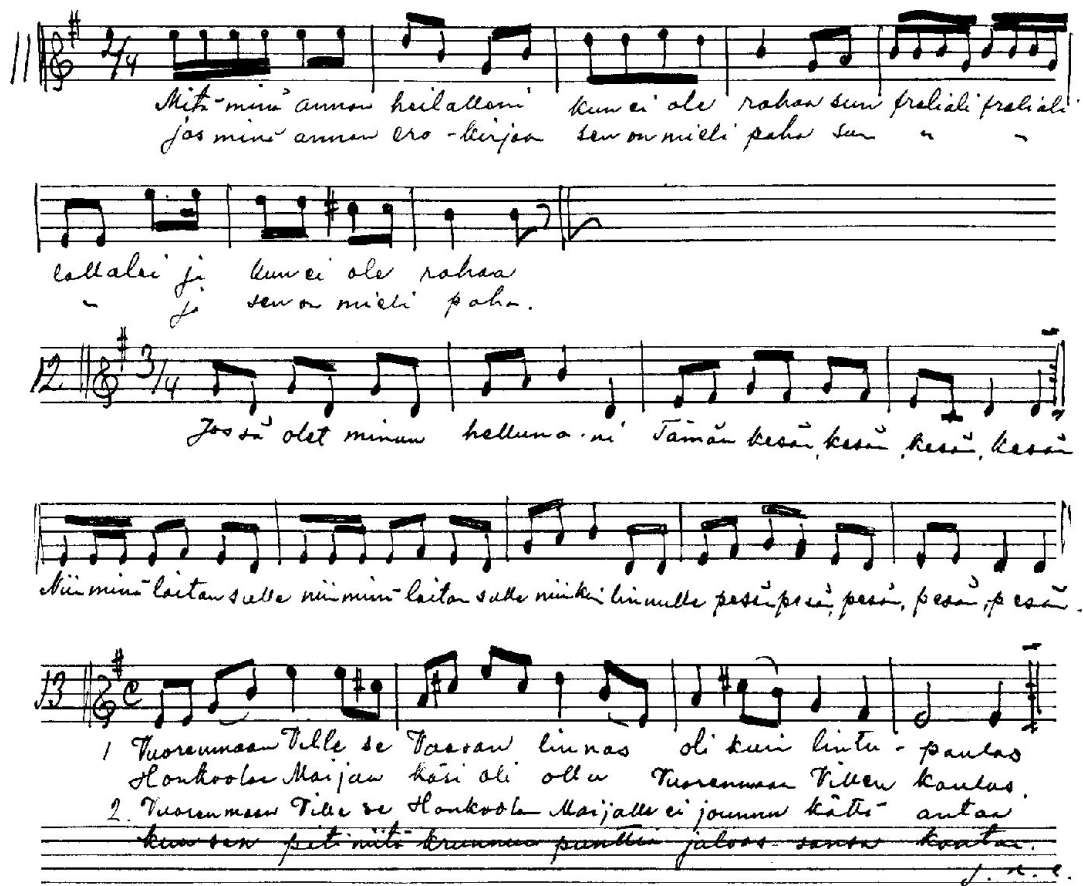 11 2/4
Mitä minä annan heilalleni kun ei ole rahaa sun fraliali fraliali
jos minä annan ero-kirjan sen on mieli paha sun " "
lallalei ja kun ei ole rahaa
" ja sen on mieli paha.
12. 3/4
Jos sä olet minun helluna-ni Tämän kesän, kesän, kesän, kesän
Niin minä laitan sulle niin minä laitan sulle niinkuin linnulle pesän pesän, pesän, pesän, pesän.
13 C
1 Vuorenmaan Ville se Vaasan linnas oli kuin lintu-paulas
Honkoolan Maijan käsi oli ollu Vuorenmaan Villen kaulas.
2. Vuorenmaan Ville se Honkoolan Maijalle ei joutunu kättä antaa
kun sen piti niitä kruunun punttia jaloos sansa kantaa.
j. n. e.